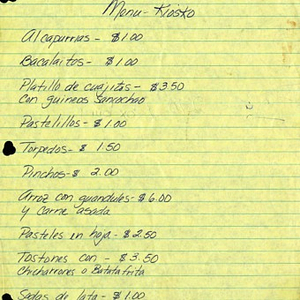 Menu - Kiosko
Alcapurrias - $1.00
Bacalaitos - $1.00
Platillo de cuajitos - $3.50
con guineos Sancochao
Pastelillos - $1.00
Torpedos - $ 1.50
Pinchos - $ 2.00
Arroz con guandules - $6.00
y Carne asada
Pasteles en hoja - $2.50
Tostones con - $3.50
chicharrones o Batata frita
Sodas de lata - $1.00